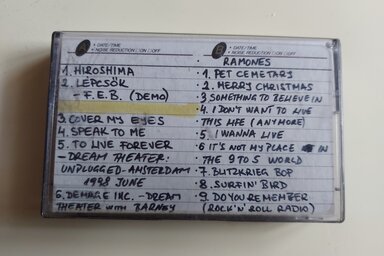 A • DATE/TIME
• NOISE REDUCTION □ON □OFF
1. HIROSHIMA
2. LÉPCSŐK
- F.E.B. (DEMO)
3. COVER MY EYES
4. SPEAK TO ME
5. TO LIVE FOREVER
- DREAM THEATER:
UNPLUGGED-AMSTERDAM
1998 JUNE
6. DEMAGE INC. - DREAM
THEATER WITH BARNEY
B • DATE/TIME
• NOISE REDUCTION □ON □OFF
RAMONES
1. PET CEMETARY
2. MERRY CHRISTMAS
3 SOMETHING TO BELIEVE IN
4. I DON'T WANT TO LIVE
THIS LIFE (ANYMORE)
5. I WANNA LIVE
6 IT'S NOT MY PLACE IN
THE 9 TO 5 WORLD
7. BLITZKRIEG BOP
8. SURFIN' BIRD
9. DO YOU REMEMBER
(ROCK'N'ROLL RADIO)